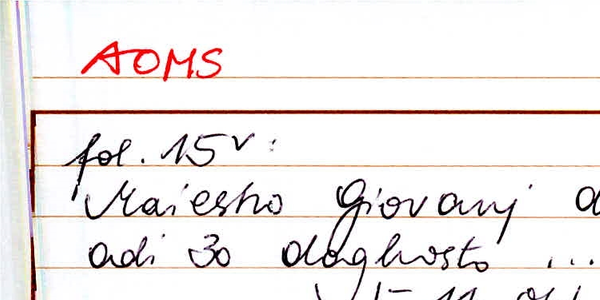 AOMS
fol. 15v:
Maiestro Giovanj d
adi 30 doghosto ...